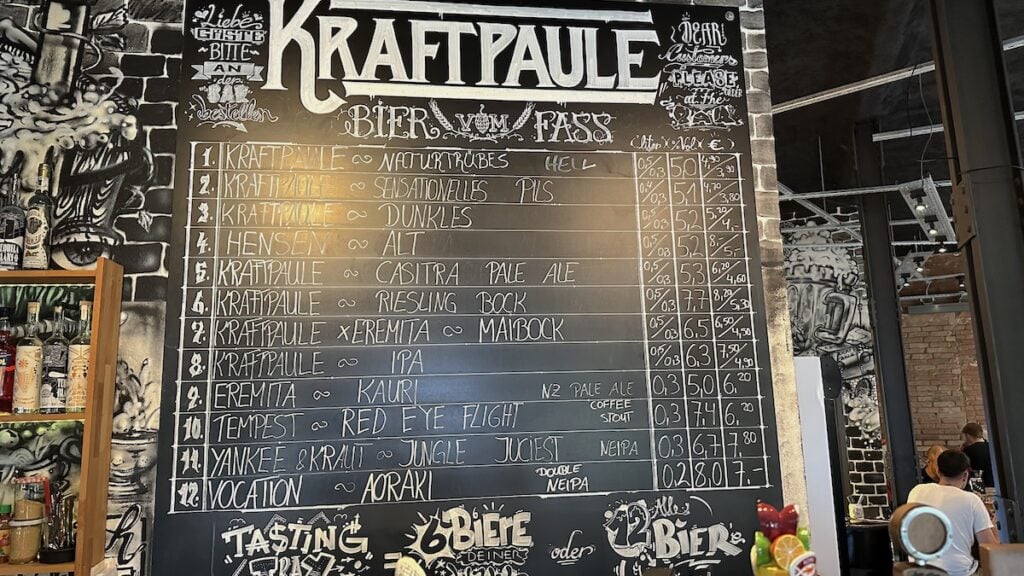 Liebe
Gäste
BITTE
AN
der
BAR
bestellen
KRAFTPAULE
DEAR
Customers
PLEASE
ORDER
at the
BAR
BIER VOM FASS
1. KRAFTPAULE ~ NATURTRÜBES HELL 0,5 0,3 5,0
2. KRAFTPAULE ~ SENSATIONELLES PILS 0,4 0,3 5,1 4,70 3,80
3. KRAFTPAULE ~ DUNKLES 0,5 0,3 5,2
4. HENSEN ~ ALT 0,5 0,3 5,2
5. KRAFTPAULE ~ CASITRA PALE ALE 0,5 0,3 5,3 6,20 4,60
6. KRAFTPAULE ~ RIESLING BOCK 0,5 0,3 7,7 5,30
7. KRAFTPAULE x EREMITA ~ MAIBOCK 0,5 0,3 6,5 6,50 4,50
8. KRAFTPAULE ~ IPA 0,5 0,3 6,3 7,50
9. EREMITA ~ KAURI NZ PALE ALE 0,3 5,0 6,20
10. TEMPEST ~ RED EYE FLIGHT COFFEE STOUT 0,3 7,4 6,20
11. YANKEE & KRAUT ~ JUNGLE JUCIEST NEIPA 0,3 6,7 7,80
12. VOCATION ~ AORAKI DOUBLE NEIPA 0,2 8,0 7,-
TASTING
= 6 BIERE
DEINER
oder
12 Alle
BIER